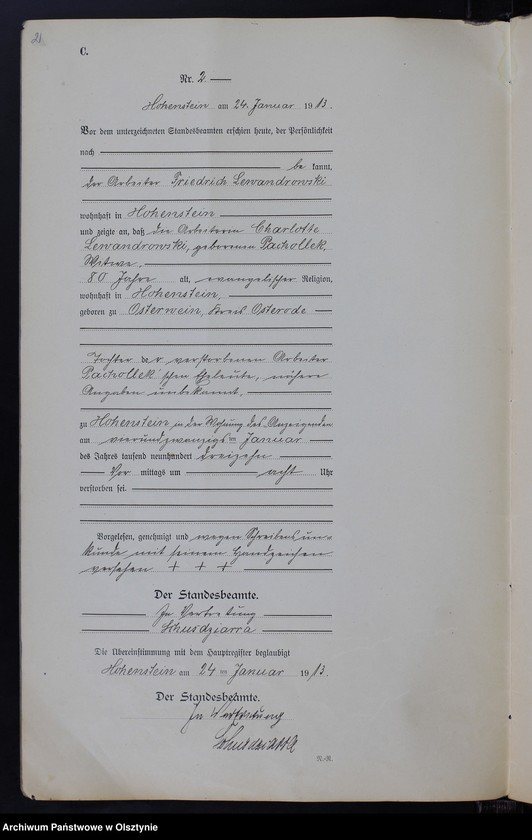 21
C.
Nr. 2
Hohenstein am 24. Januar 1913.
Vor dem unterzeichneten Standesbeamten erschien heute, der Persönlichkeit
nach
be kannt,
der Arbeiter Friedrich Lewandrowski
wohnhaft in Hohenstein
und zeigte an, daß die Arbeiterin Charlotte
Lewandrowski, geborenen Pachollek,
Witwe,
80 Jahre alt, evangelischer Religion,
wohnhaft in Hohenstein,
geboren zu Osterwein, Kreis Osterode
Tochter der verstorbenen Arbeiter
Pachollek'schen Eheleute, nähere
Angaben unbekannt,
zu Hohenstein in der Wohnung des Anzeigenden
am vierundzwanzigsten Januar
des Jahres tausend neunhundert dreizehn
Vor mittags um acht Uhr
verstorben sei.
Vorgelesen, genehmigt und wegen Schreibensun-
kunde mit seinem Handzeichen
versehen + + +
Der Standesbeamte.
In Vertretung
Schusdziarra
Die Übereinstimmung mit dem Hauptregister beglaubigt
Hohenstein am 24 ten Januar 1913.
Der Standesbeamte.
In Vertretung
Schusdziarra
Archiwum Państwowe w Olsztynie